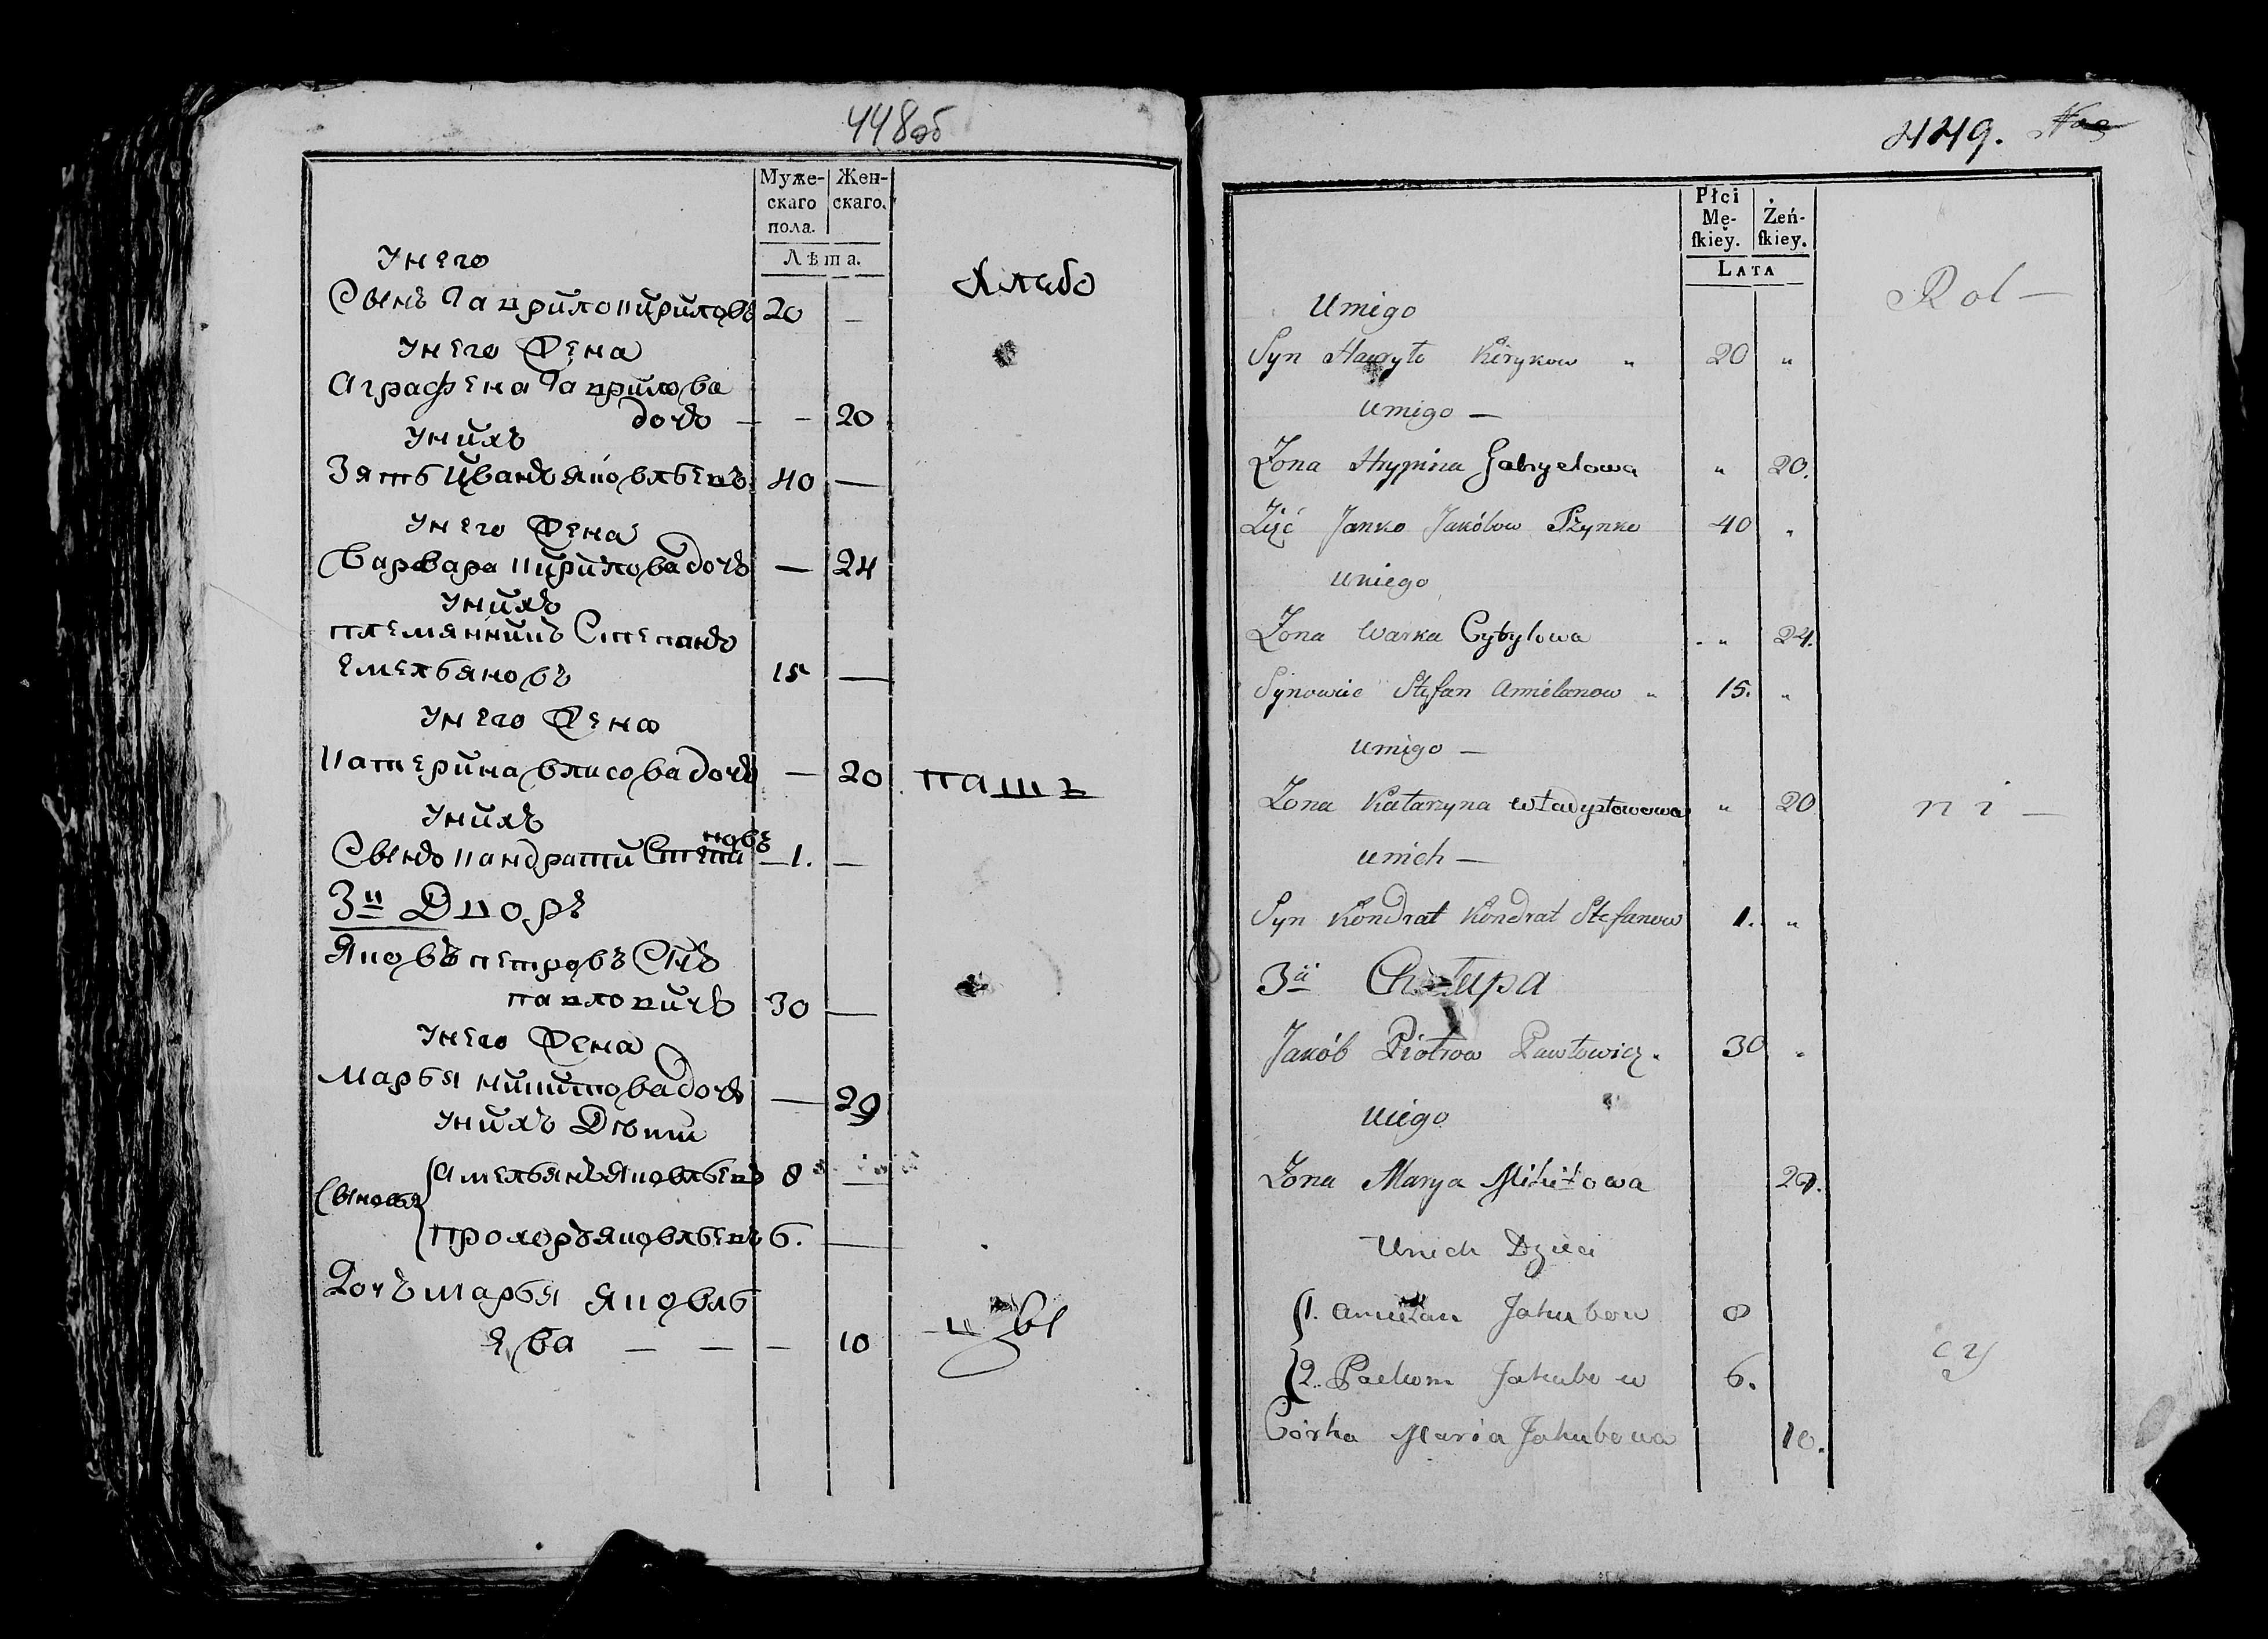 448об
Муже-
скаго
пола.
Жен-
скаго.
Лѣта.
Хлебо
У него
Сынъ Гаврило Кириловъ 20 —
У него жена
Аграфена Гаврилова
дочь — — 20
У нихъ
Зять Иванъ Яковльевъ 40 —
У него жена
Варвара Кирилова дочь — 24
У нихъ
племянникъ Степанъ
Емельяновъ 15 —
У него жена
Катерина власова дочь — 20
пашъ
У нихъ
Сынъ Кандратий Степановъ — 1. —
3й Дворъ
Яковъ петровъ Снъ
павловичъ 30 —
У него жена
Марья никитова дочь — 29
У нихъ Дѣти
Сыновья
Амельянъ Яковльевъ 8 —
прохоръ Яковльевъ 6. —
Дочь марья Яковль
ева — — — 10
цы
449.
Płci
Mę-
ſkiey.
Żeń-
ſkiey.
LATA
Rol —
Umigo
Syn Hawryło Kirykow „ 20 „
Umigo —
Żona Hrypina Gabryelowa „ 20.
Zięć Janko Jakóbow 40 „
Uniego
Żona Warka Cyrylowa „ 24.
Synowiec Stefan Amielanow „ 15. „
Umigo —
Żona Katarzyna Władysłowowa „ 20
ni —
Unich —
Syn Kondrat Kondrat Stefanow 1. „
3a Chałupa
Jakób Piotrow Pawłowicz. 30 „
Uiego
Żona Marya Mikitowa 29.
Unich Dzieci
1. Amielan Jakubow 8
2. Pachom Jakubow 6.
cy
Córka Maria Jakubowa 10.